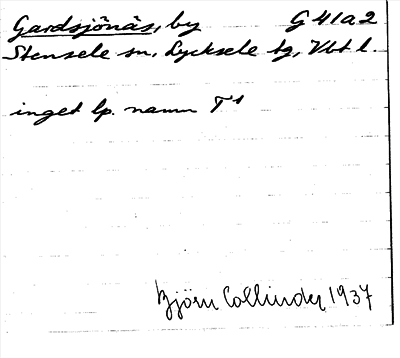 Gardsjönäs, by G 41a2
Stensele sn, Lycksele tg, Vbt l.
inget lp. namn T¹
Björn Collinder, 1937